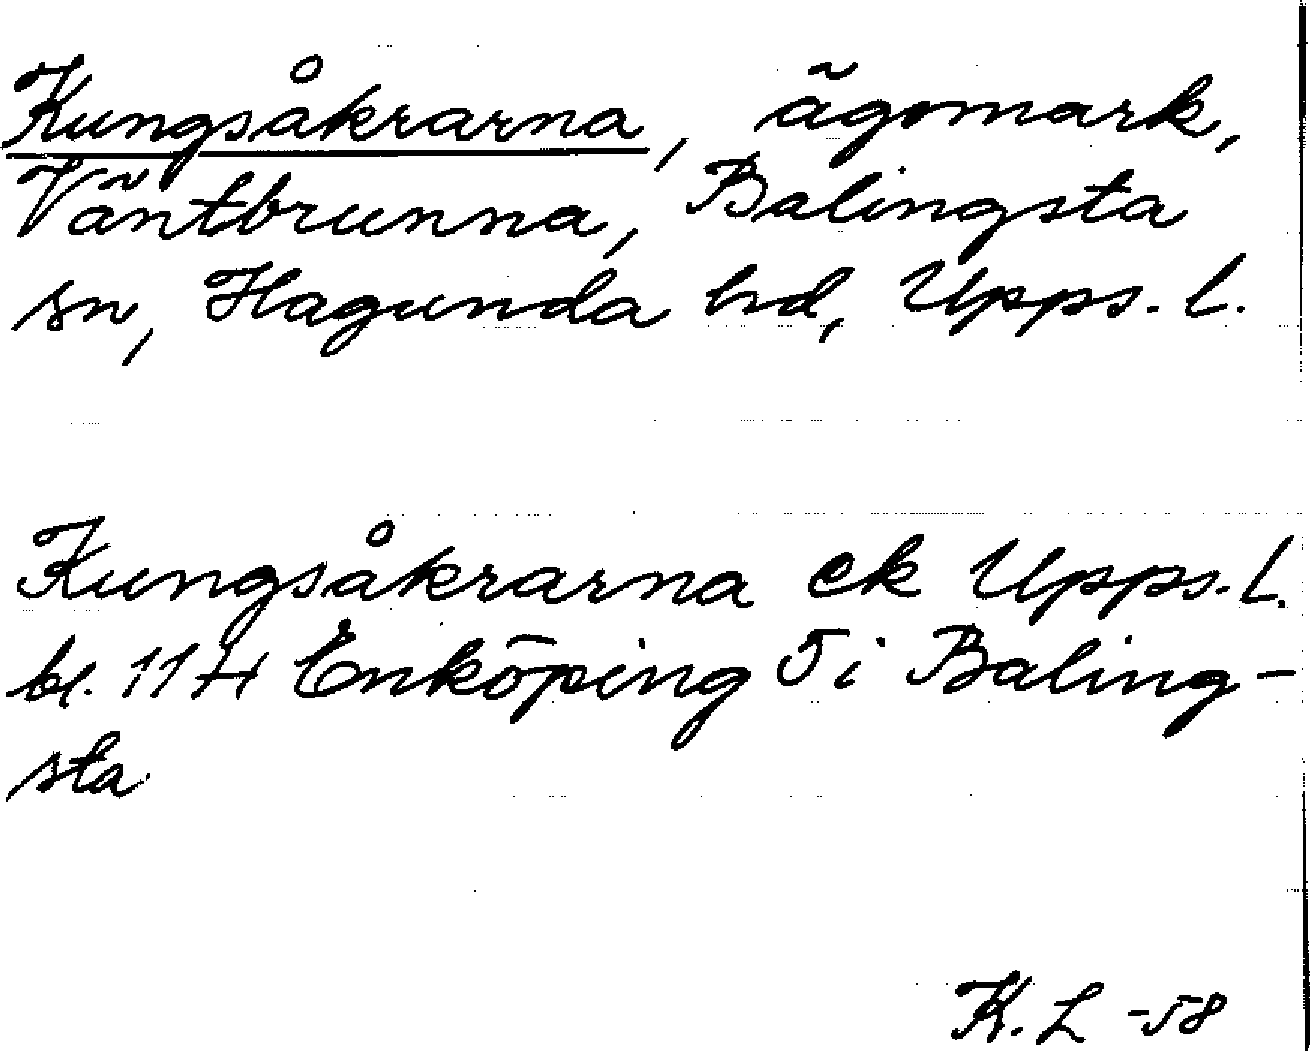 Kungsåkrarna, ägomark,
Väntbrunna, Balingsta
sn, Hagunda hd, Upps. l.
Kungsåkrarna ek Upps. L.
bl. 11H Enköping 5i Baling-
sta
K. L -58